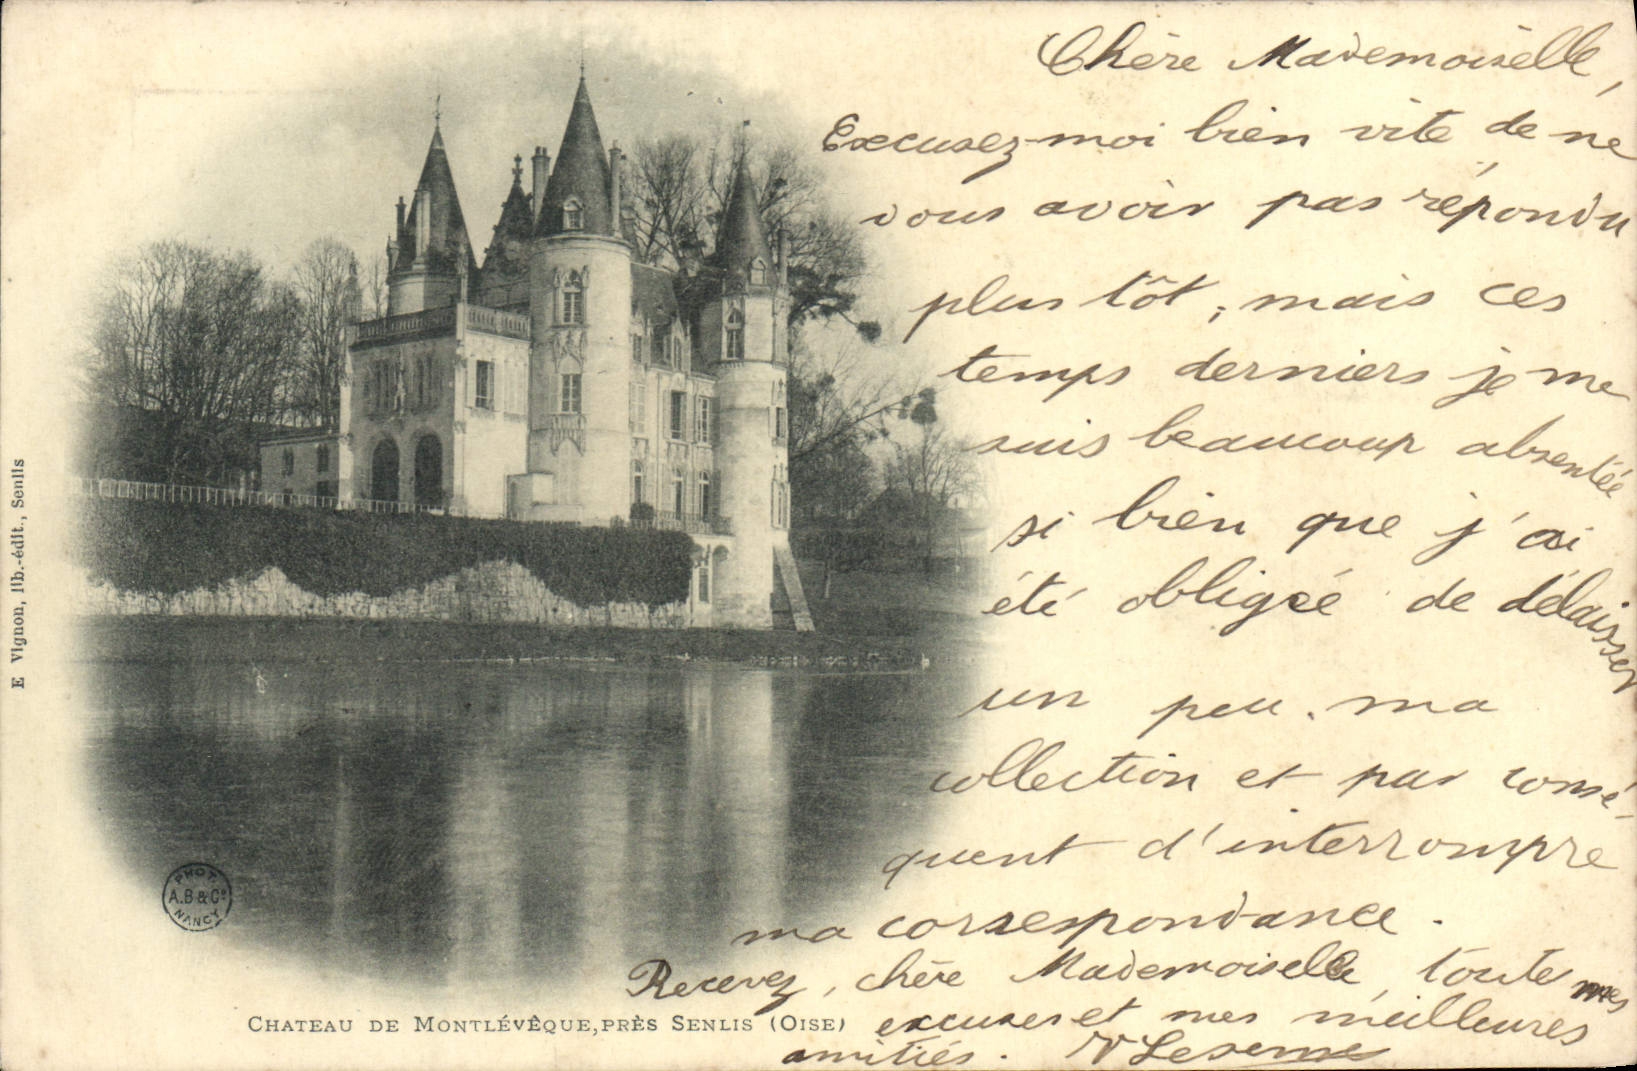 Chère Mademoiselle,
Excusez-moi bien vite de ne
vous avoir pas répondu
plus tôt, mais ces
temps derniers je me
suis beaucoup absentée
si bien que j'ai
été obligée de délaisser
un peu ma
collection et par consé-
quent d'interrompre
ma correspondance.
Recevez, chère Mademoiselle, toute mes
excuses et mes meilleures
amitiés.
E Vignon, lib.-édit., Senlis
PHOT.
A.B & Cº
NANCY
CHATEAU DE MONTLÉVÊQUE, PRÈS SENLIS (OISE)